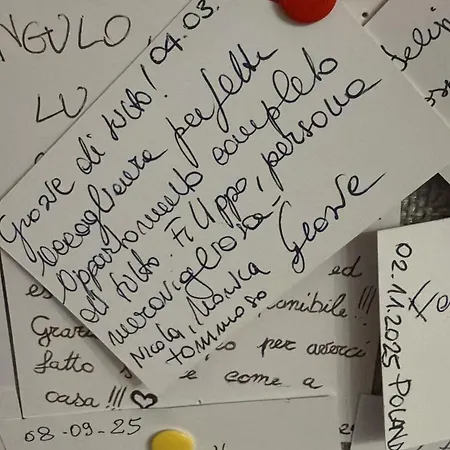 NGULO
LU
Grazie di tutto! 04.03.
accoglienza perfetta
appartamento completo
di tutto. Filippo, persona
meravigliosa-
Grazie
Nicola, Monica
Tommaso
ed
es
onibile!!!
Graz
o per averci
fatto s e come a
casa!!!
08-09-25
02.11.2025 POLAND